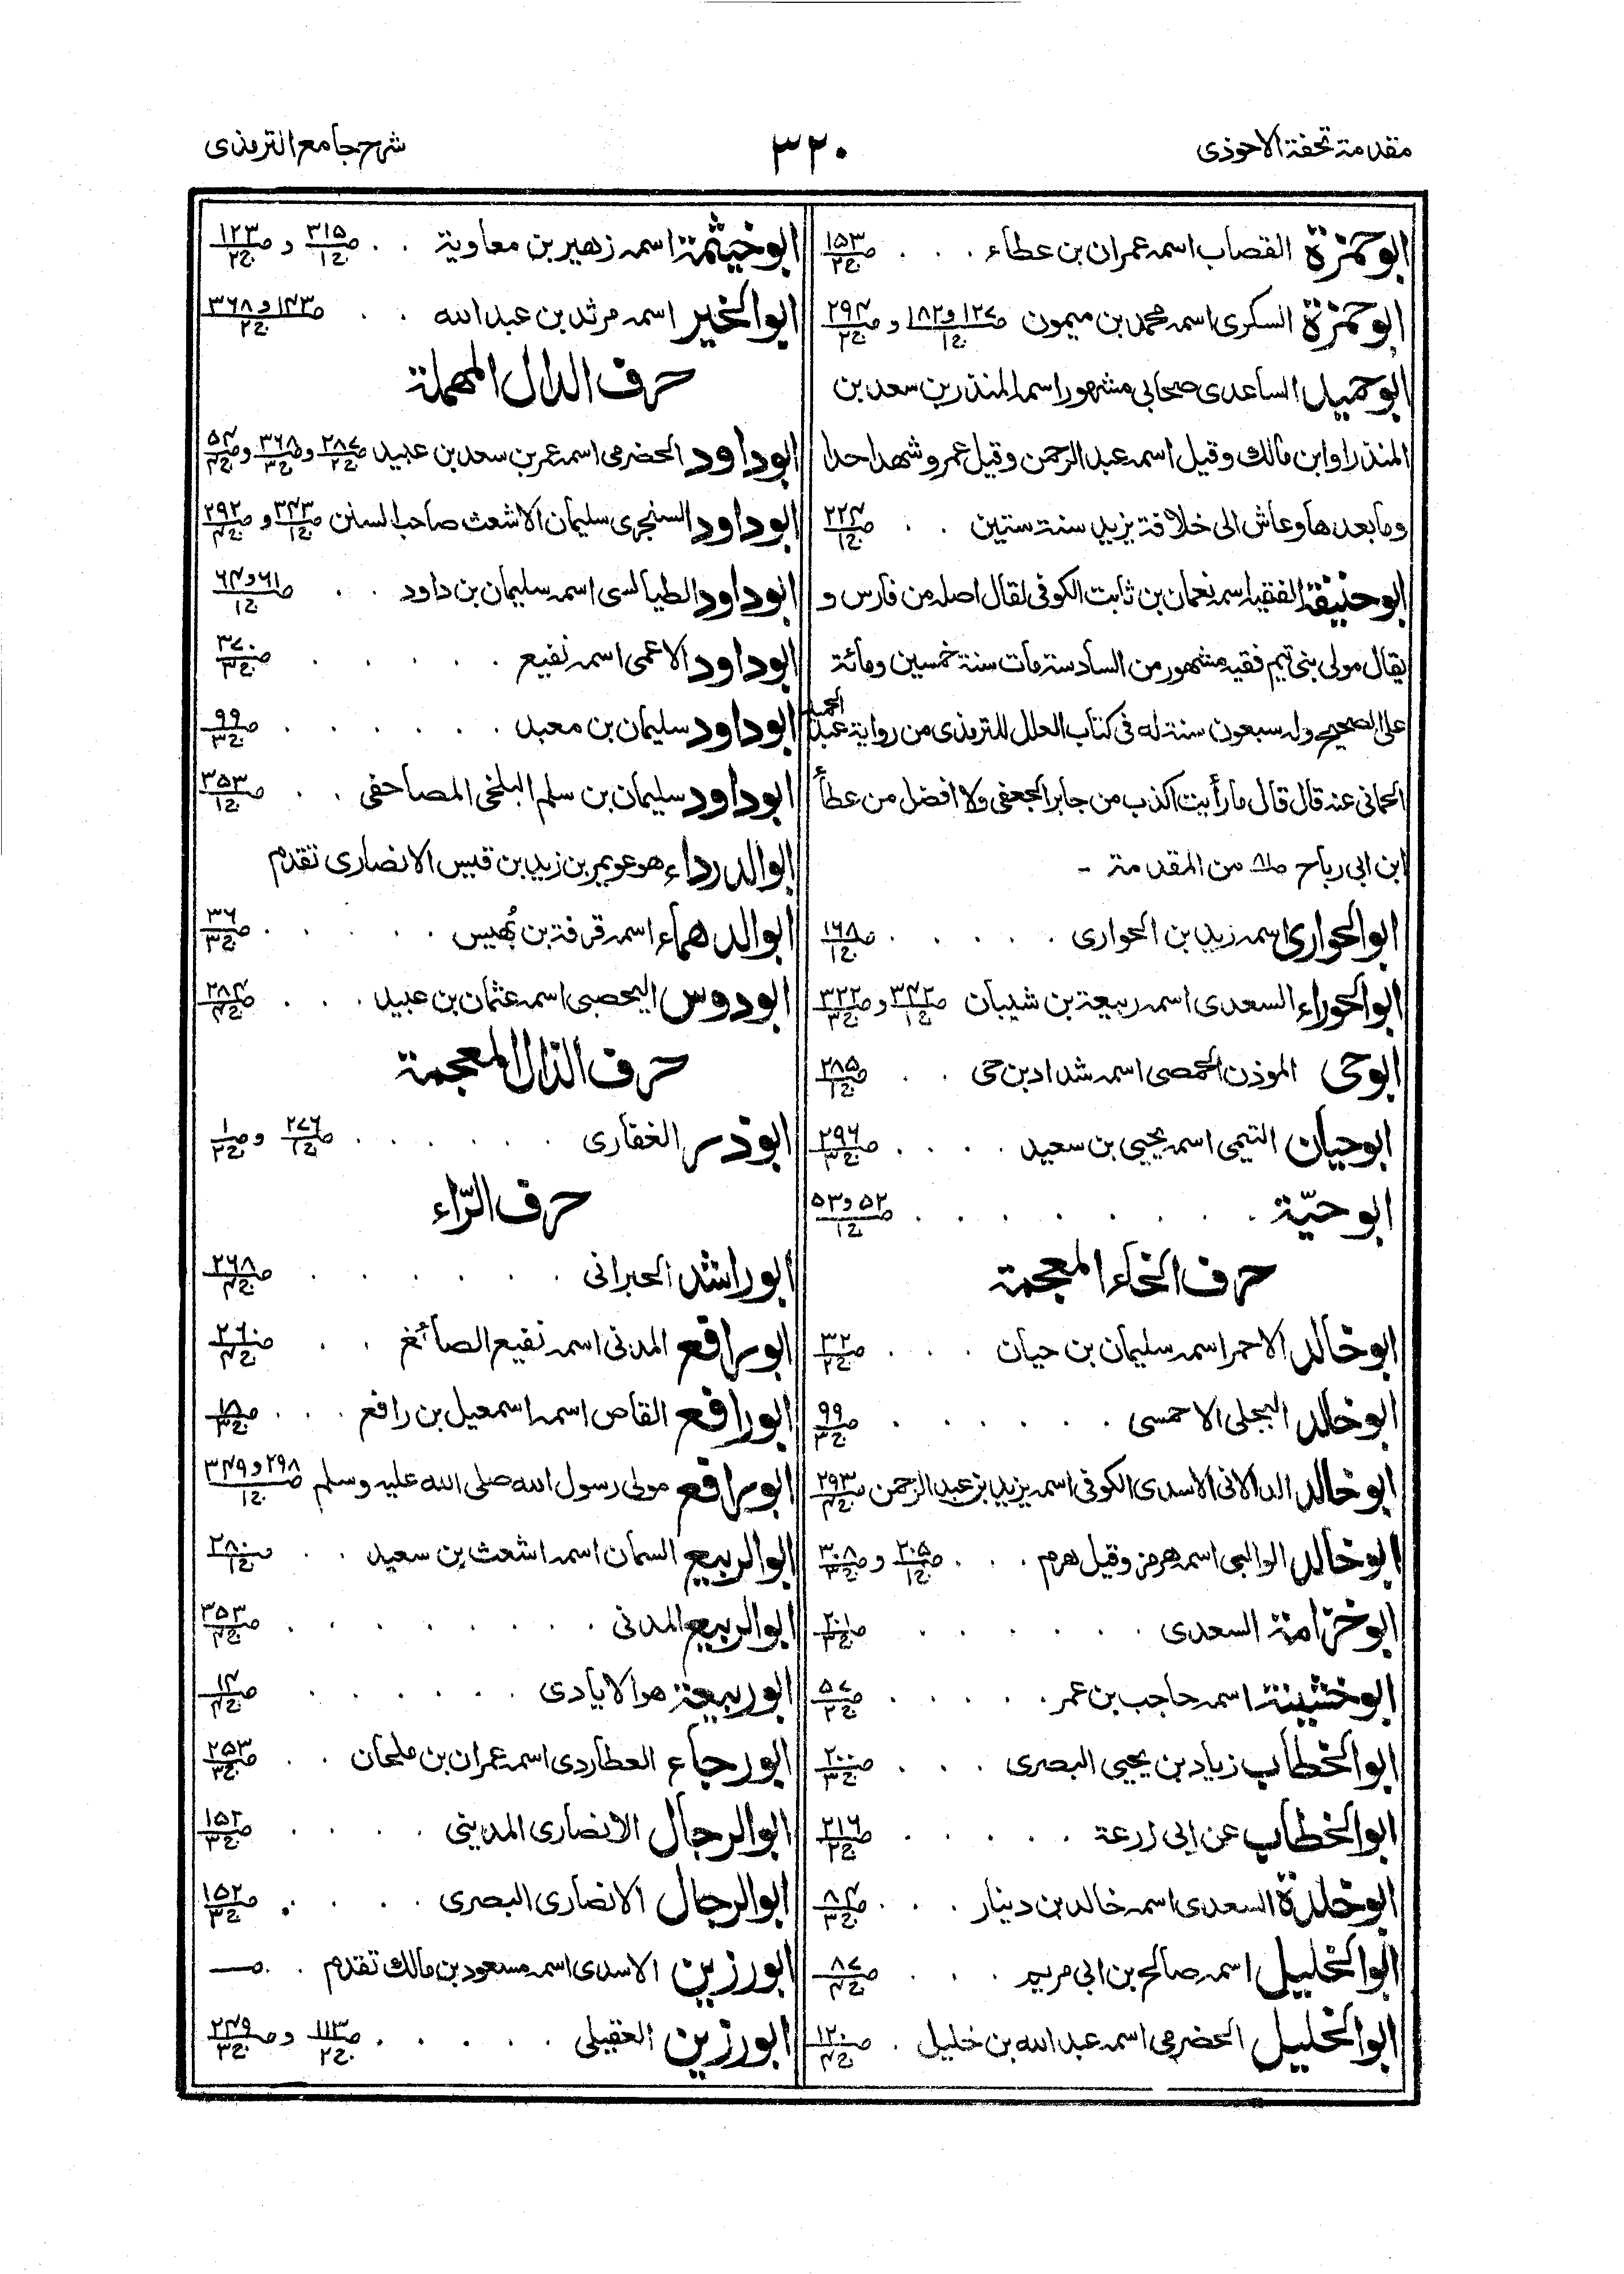 مقدمة تحفة الاحوذى
٣٢٠
شرح جامع الترمذى
ابوحمزة القصاب اسمه عمران بن عطاء . . . ص١٥٣ ج٢
ابوحمزة السكرى اسمه محمد بن ميمون ص١٢٧ و١٨٢ ج١ و ص٢٩٤ ج٢
ابوحميد الساعدى صحابى مشهور اسمه المنذر بن سعد بن
المنذر او ابن مالك وقيل اسمه عبد الرحمن وقيل عمرو شهد احدا
وما بعدها وعاش الى خلافة يزيد سنة ستين . . ص٢٢٤ ج١
ابوحنيفة الفقيه اسمه نعمان بن ثابت الكوفى لقال اصله من فارس و
يقال مولى بنى تيم فقيه مشهور من السادسة مات سنة خمسين ومائة
على الصحيح وله سبعون سنة له فى كتاب العلل للترمذى من رواية عبد الحميد
الحمانى عنه قال قال ما رأيت اكذب من جابر الجعفى ولا افضل من عطأ
ابن ابى رباح من المقدمة -
ابوالحوارى اسمه زيد بن الحوارى . . . . . ص١٦٨ ج١
ابوالحوراء السعدى اسمه ربيعة بن شيبان ص٣٤٢ ج١ و ص٣٢٢ ج٣
ابوحى الموذن الحمصى اسمه شداد بن حى . . ص٢٨٥ ج١
ابوحيان التيمى اسمه يحيى بن سعيد . . . . ص٢٩٦ ج٣
ابوحيّة . . . . . . . ص٥٢ و٥٣ ج١
حرف الخاء المعجمة
ابوخالد الاحمر اسمه سليمان بن حيان . . . ص٣٢ ج٢
ابوخالد البجلى الاحمسى . . . . . . ص٩٩ ج٣
ابوخالد الدالانى الاسدى الكوفى اسمه يزيد بن عبد الرحمن ص٢٩٣ ج٤
ابوخالد الوالبى اسمه هرمز وقيل هرم . . . ص٢٠٥ ج١ و ص٣٠٨ ج٣
ابوخزامة السعدى . . . . . . ص٢٠١ ج٣
ابوخشينة اسمه حاجب بن عمر . . . . . ص٥٧ ج٢
ابوالخطاب زياد بن يحيى البصرى . . . ص٢٠٠ ج٣
ابوالخطاب عن ابى زرعة . . . . . ص٢١٦ ج٢
ابوخلدة السعدى اسمه خالد بن دينار . . . ص٨٤ ج٣
ابوالخليل اسمه صالح بن ابى مريم . . . ص٨٧ ج٤
ابوالخليل الحضرمى اسمه عبد الله بن خليل . ص١٢٠ ج٤
ابوخيثمة اسمه زهير بن معاوية . . ص٣١٥ ج١ و ص١٢٣ ج٢
ابوالخير اسمه مرثد بن عبد الله . . ص١٤٣ و٣٦٨ ج٢
حرف الدال المهملة
ابوداود الحضرمى اسمه عمر بن سعد بن عبيد ص٢٨٧ ج٢ و ص٣٦٨ ج٣ و ص٥٤ ج٤
ابوداود السنجرى سليمان الاشعث صاحب السنن ص٣٤٣ ج١ و ص٢٩٢ ج٤
ابوداود الطيالسى اسمه سليمان بن داود . . ص٦١ و٦٤ ج١
ابوداود الاعمى اسمه نفيع . . . . . ص٣٧٠ ج٣
ابوداود سليمان بن معبد . . . . . . ص٩٩ ج٣
ابوداود سليمان بن سلم البلخى المصاحفى . . ص٣٥٣ ج١
ابوالدرداء هو عويمر بن زيد بن قيس الانصارى تقدم
ابوالدهماء اسمه قرفة بن بُهيس . . . . . ص٣٦ ج٣
ابودوس اليحصبى اسمه عثمان بن عبيد . . . ص٢٨٤ ج٤
حرف الذال المعجمة
ابوذر الغفارى . . . . . . ص٢٧٦ ج١ و ص١ ج٢
حرف الرّاء
ابوراشد الحبرانى . . . . . . ص٢٦٨ ج٤
ابورافع المدنى اسمه نفيع الصائغ . . ص٢٦٠ ج٤
ابورافع القاص اسمه اسمعيل بن رافع . . . ص١٨ ج٣
ابورافع مولى رسول الله صلى الله عليه وسلم ص٢٩٨ و٣٤٩ ج١
ابوالربيع السمان اسمه اشعث بن سعيد . . ص٢٨٠ ج١
ابوالربيع المدنى . . . . . . . . ص٣٥٣ ج٤
ابوربيعة هو الايادى . . . . . . ص١٤ ج٤
ابورجاء العطاردى اسمه عمران بن ملحان . . ص٢٥٣ ج٣
ابوالرجال الانصارى المدينى . . . . ص١٥٢ ج٣
ابوالرجال الانصارى البصرى . . . . . ص١٥٢ ج٣
ابورزين الاسدى اسمه مسعود بن مالك تقدم . . صـ
ابورزين العقيلى . . . . . ص١١٣ ج٢ و ص٢٤٩ ج٣